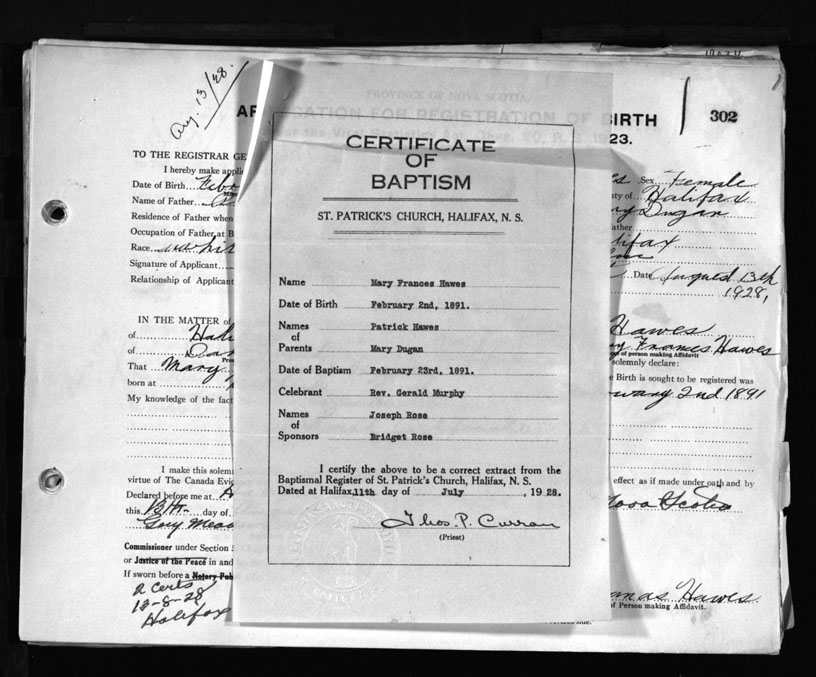 Aug. 13/28.
PROVINCE OF NOVA SCOTIA.
AP CATION FOR REGISTRATION OF BIRTH
302
23.
CERTIFICATE
OF
BAPTISM
ST. PATRICK'S CHURCH, HALIFAX, N. S.
Name Mary Frances Hawes
Date of Birth February 2nd, 1891.
Names Patrick Hawes
of
Parents Mary Dugan
Date of Baptism February 23rd, 1891.
Celebrant Rev. Gerald Murphy
Names Joseph Rose
of
Sponsors Bridget Rose
I certify the above to be a correct extract from the
Baptismal Register of St. Patrick's Church, Halifax, N. S.
Dated at Halifax 11th day of July, 1928.
Thos. P. Curran
(Priest)
TO THE REGISTRAR GE
I hereby make appli
Date of Birth
Name of Father
Residence of Father when
Occupation of Father at B
Race whi
Signature of Applicant
Relationship of Applicant
IN THE MATTER of
of Hali
of
That Mary
born at
My knowledge of the fact
I make this solem
virtue of The Canada Evi
Declared before me at
this 13th day of
Commissioner under Section
or Justice of the Peace in and
If sworn before a Notary Pub
2 Certs
13-8-28
Halifax
Sex Female
ty of Halifax
ry Dugan
ather
lifax
Date August 13th
1928,
Hawes
y Frances Hawes
of person making Affidavit
solemnly declare:
e Birth is sought to be registered was
uary 2nd 1891
effect as if made under oath and by
Nova Scotia
Hawes
of Person making Affidavit.